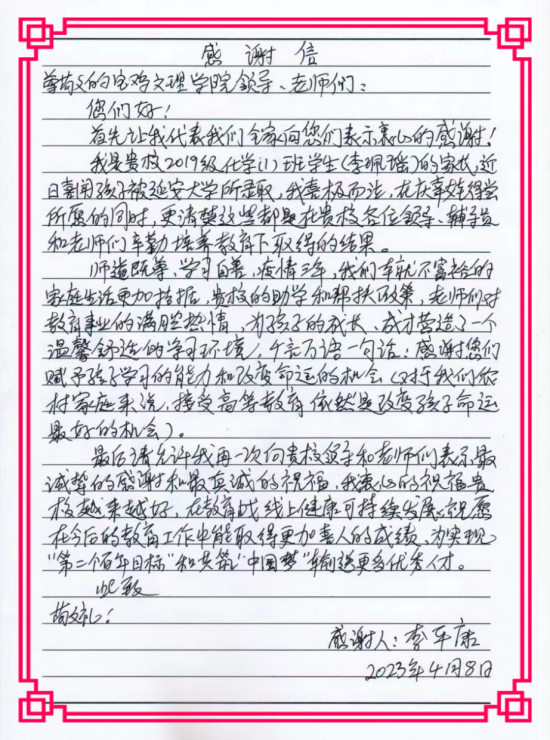 感谢信
尊敬的宝鸡文理学院领导、老师们：
您们好！
首先让我代表我们全家向您们表示衷心的感谢！
我是贵校2019级化学(1)班学生(李佩瑶)的家长,近
日喜闻孩子被延安大学所录取,我喜极而泣,在庆幸她得尝
所愿的同时,更清楚这些都是在贵校各位领导、辅导员
和老师们辛勤培养教育下取得的结果。
师道既尊,学习自善,疫情三年,我们本就不富裕的
家庭生活更加拮据,贵校的助学和帮扶政策,老师们对
教育事业的满腔热情,为孩子的成长、成才营造了一个
温馨舒适的学习环境,千言万语一句话：感谢您们
赋予孩子学习的能力和改变命运的机会(对于我们农
村家庭来说,接受高等教育依然是改变孩子命运
最好的机会)。
最后请允许我再一次向贵校领导和老师们表示最
诚挚的感谢和最真诚的祝福,我衷心的祝福贵
校越来越好,在教育战线上健康可持续发展,祝愿
在今后的教育工作中能取得更加喜人的成绩,为实现
“第二个百年目标”和共筑“中国梦”输送更多优秀人才。
此致
敬礼！
感谢人：李平康
2023年4月8日